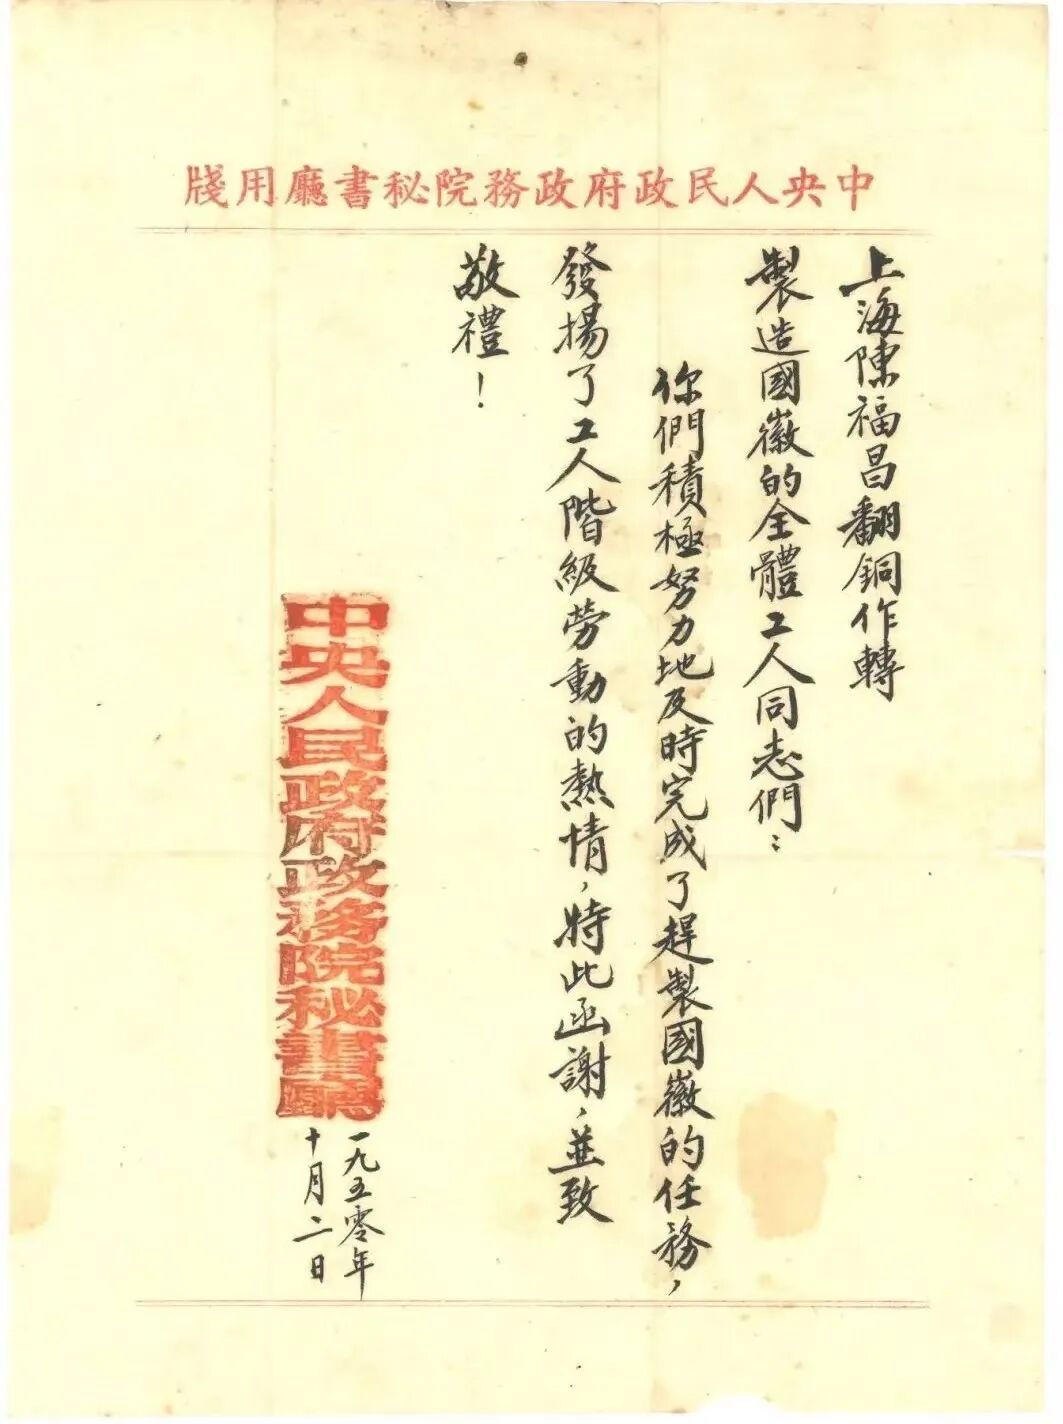 中央人民政府政務院秘書廳用牋
上海陳福昌翻銅作轉
製造國徽的全體工人同志們：
你們積極努力地及時完成了趕製國徽的任務，
發揚了工人階級勞動的熱情，特此函謝，並致
敬禮！
中央人民政府政务院秘書廳
一九五零年
十月二日